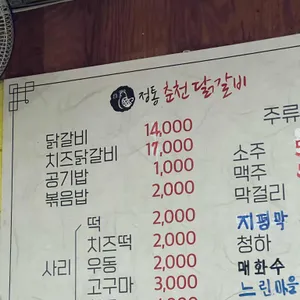 정통 춘천 닭갈비
닭갈비 14,000
치즈닭갈비 17,000
공기밥 1,000
볶음밥 2,000
사리
떡 2,000
치즈떡 2,000
우동 2,000
고구마 3,000
주류
소주
맥주
막걸리
지평막
청하
매화수
느린마을